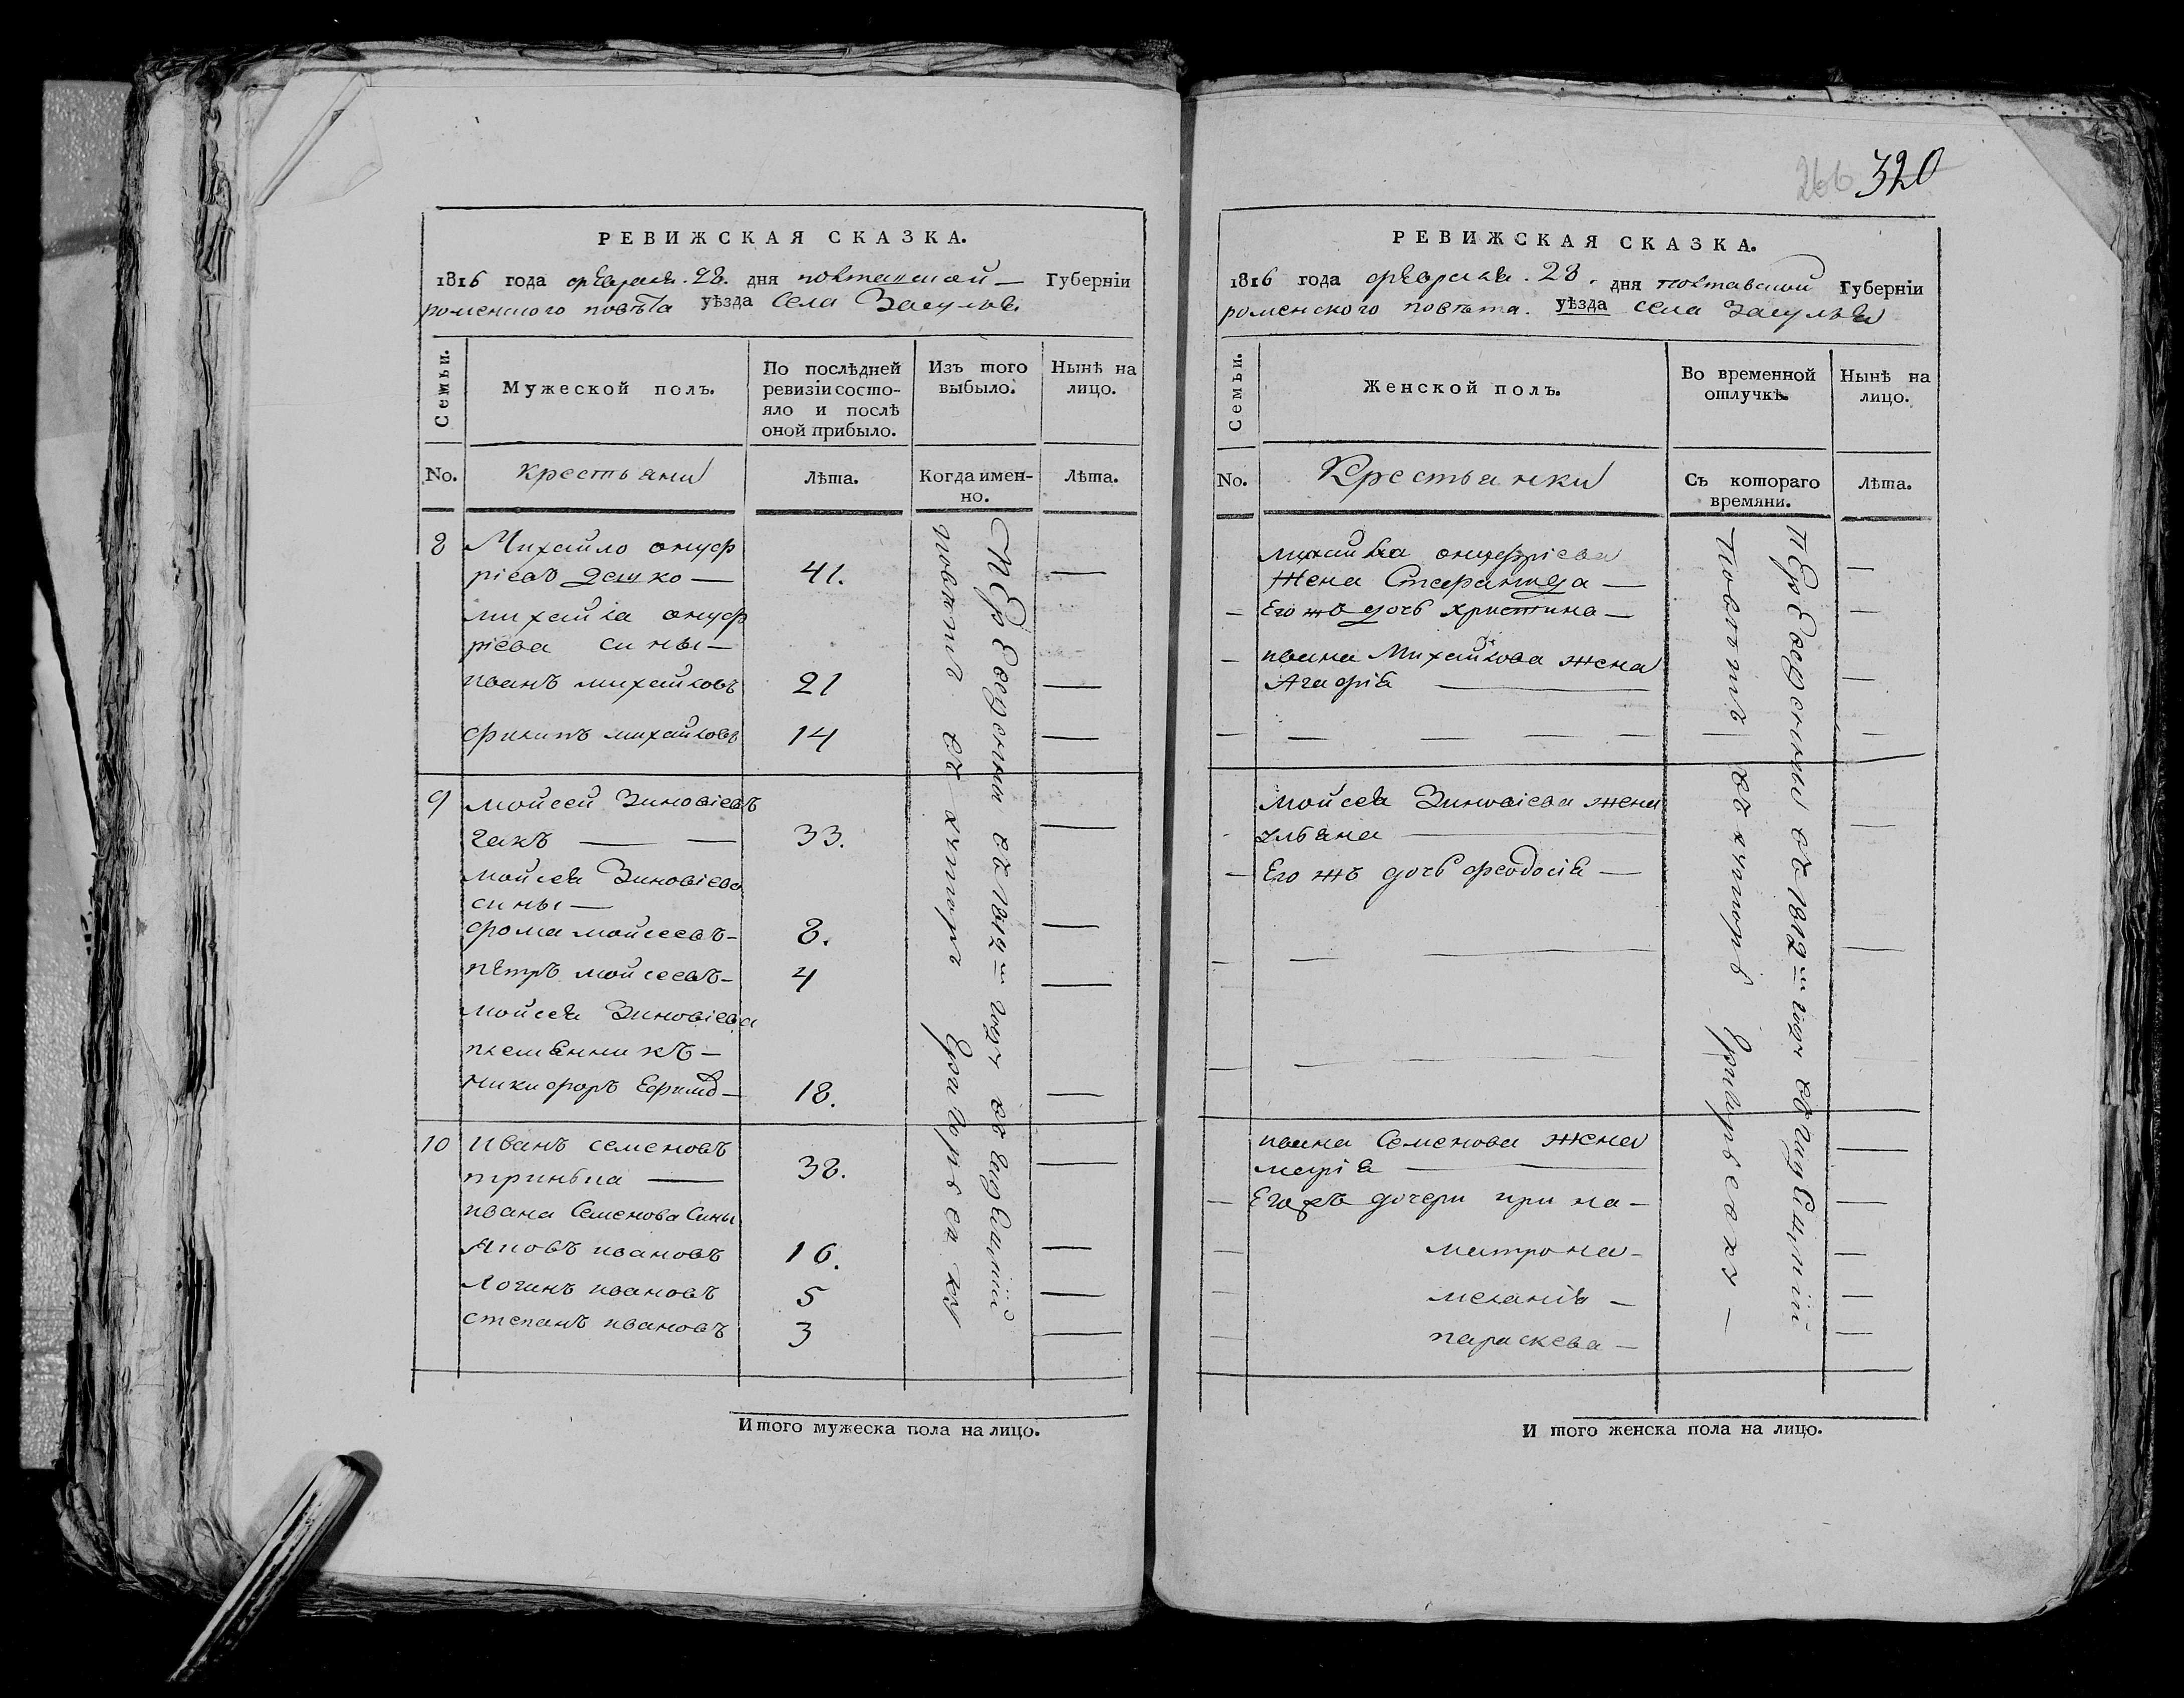 РЕВИЖСКАЯ СКАЗКА.
1816 года февраля. 28. дня полтавской — Губерніи
роменского повѣта уѣзда села Засулья
Семьи.
Мужеской полъ.
По послѣдней
ревизіи состо-
яло и послѣ
оной прибыло.
Изъ того
выбыло.
Нынѣ на
лицо.
No.
крестьяни
Лѣта.
Когда имен-
но.
Лѣта.
8 Михайло онуф
ріевъ Дешко — 41. —
михайла онуф
ріева сины —
иванъ михайловъ 21 —
филипъ михайловъ 14 —
9 мойсей Зиновіевъ
гакъ — — 33. —
мойсея Зиновіева
сины —
фома мойсеевъ - 8. —
петръ мойсеевъ - 4 —
мойсея Зиновіева
племянникъ —
никифоръ Ефимов — 18. —
10 иванъ семеновъ
тринька — 38. —
ивана Семенова Сины
Яковъ ивановъ 16. —
Логинъ ивановъ 5 —
степанъ ивановъ 3 —
Переведены въ 1812м году въ
повѣта въ хуторъ
Итого мужеска пола на лицо.
266 320
РЕВИЖСКАЯ СКАЗКА.
1816 года февраля. 28. дня полтавской Губерніи
роменского повѣта. уѣзда села Засулья
Семьи.
Женской полъ.
Во временной
отлучкѣ.
Нынѣ на
лицо.
No.
Крестьянки
Съ котораго
времяни.
Лѣта.
михайла онуфріева
жена Стефанида — —
— Его жъ дочь христина — —
— ивана Михайлова жена
Агафія — —
— — — — — —
мойсея Зиновіева жена
ульяна — —
— Его жъ дочь феодосія —
— — — —
— — — —
ивана Семенова жена
марія — —
— Его жъ дочери ирина — —
— матрона - —
— меланія — —
— параскева — —
Переведены въ 1812м году въ
повѣта въ хуторъ
И того женска пола на лицо.